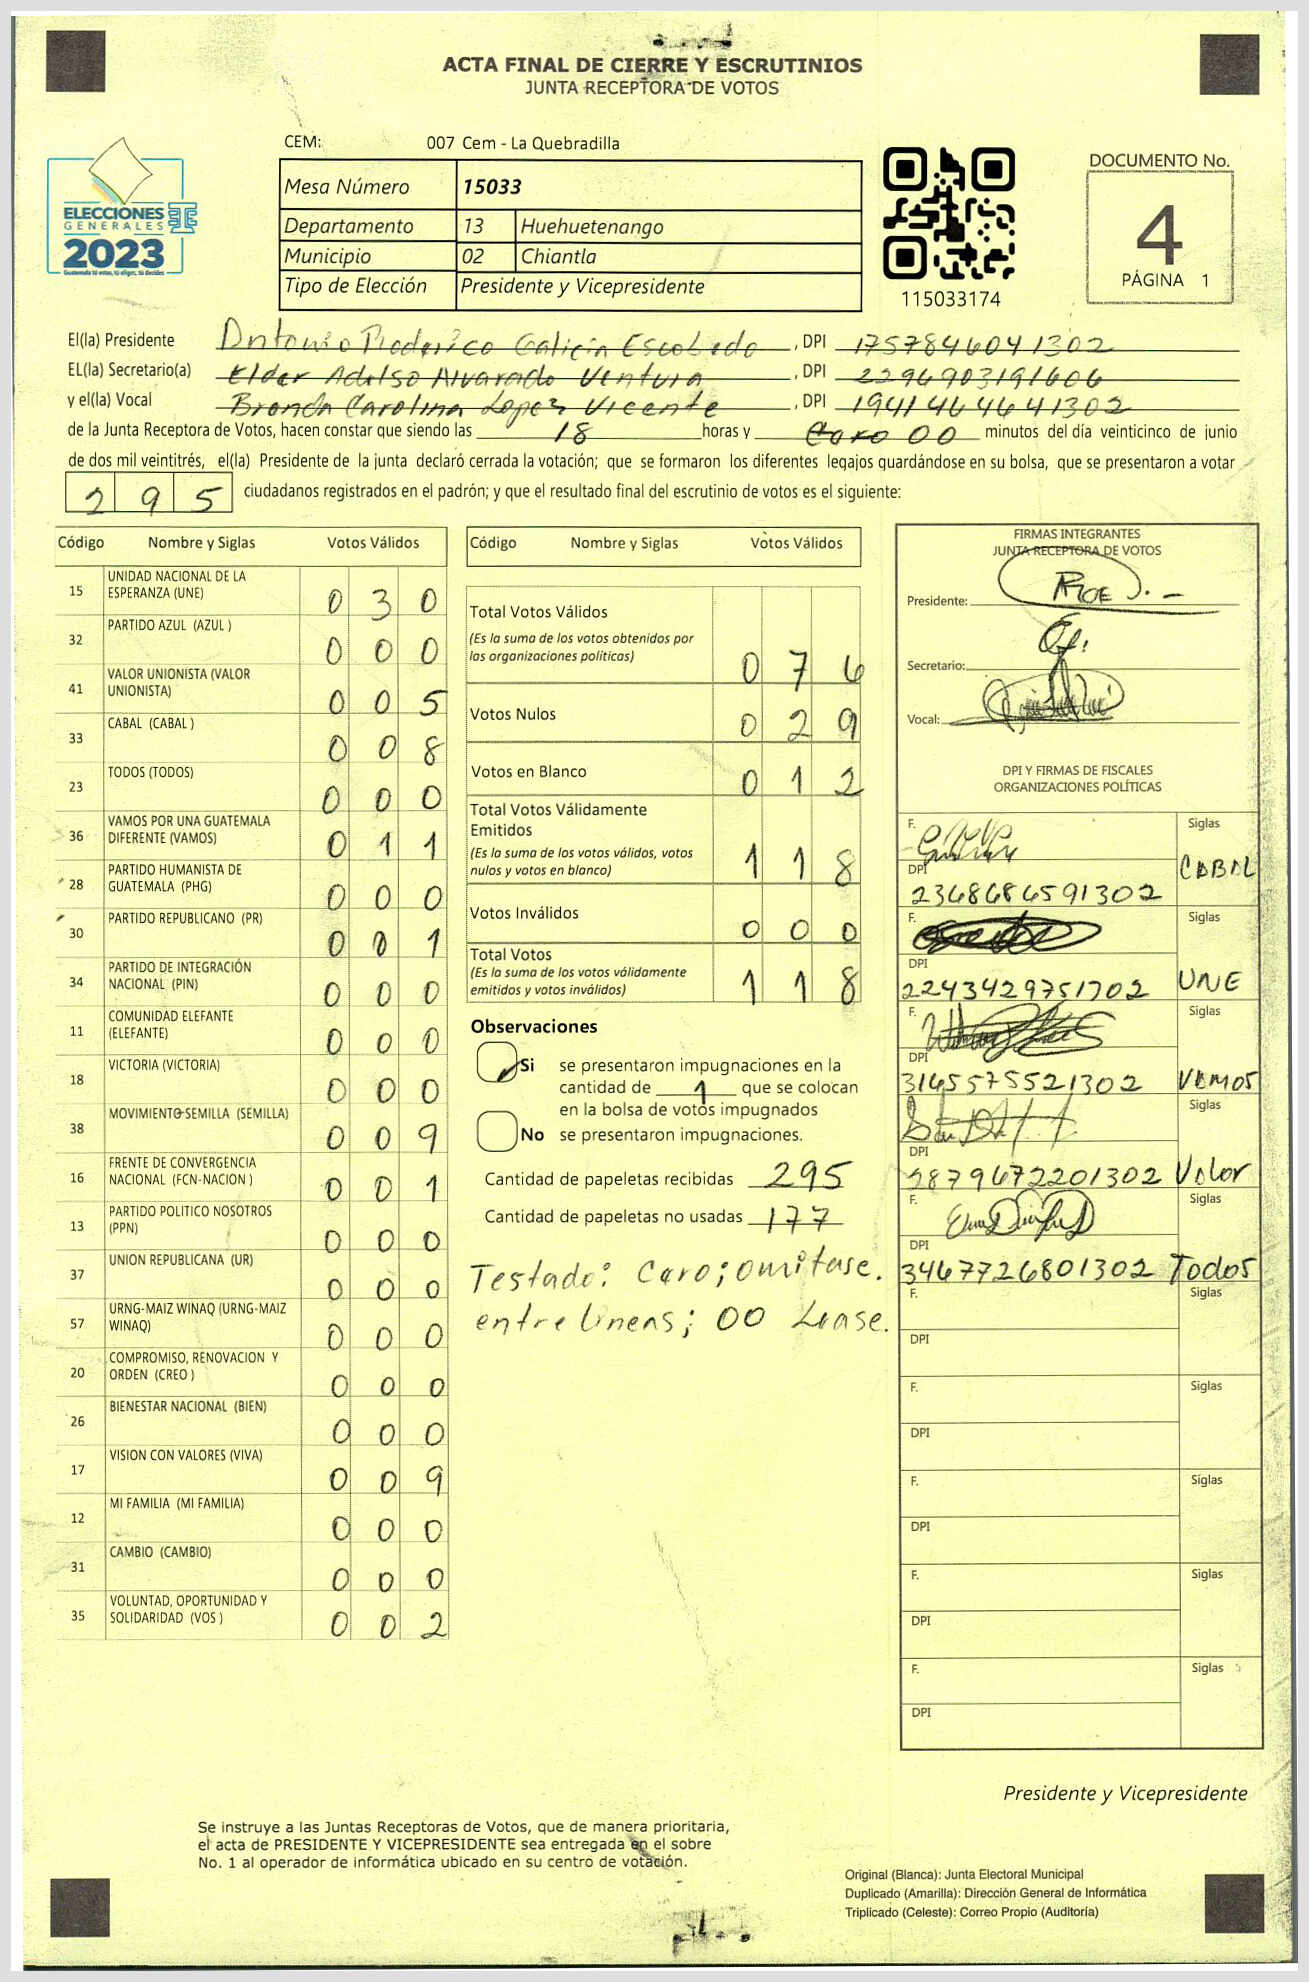 ACTA FINAL DE CIERRE Y ESCRUTINIOS
JUNTA RECEPTORA DE VOTOS
CEM: 007 Cem - La Quebradilla
Mesa Número 15033
Departamento 13 Huehuetenango
Municipio 02 Chiantla
Tipo de Elección Presidente y Vicepresidente
ELECCIONES
GENERALES
2023
Guatemala tú votas, tú eliges, tú decides
115033174
DOCUMENTO No.
4
PÁGINA 1
El(la) Presidente Antonio Roderico Galicia Escobedo, DPI 1757846041302
EL(la) Secretario(a) Elder Adelso Alvarado Ventura, DPI 2296903191606
y el(la) Vocal Brenda Carolina Lopez Vicente, DPI 1941464641302
de la Junta Receptora de Votos, hacen constar que siendo las 18 horas y Cero 00 minutos del día veinticinco de junio
de dos mil veintitrés, el(la) Presidente de la junta declaró cerrada la votación; que se formaron los diferentes legajos guardándose en su bolsa, que se presentaron a votar
295 ciudadanos registrados en el padrón; y que el resultado final del escrutinio de votos es el siguiente:
Código Nombre y Siglas Votos Válidos
15 UNIDAD NACIONAL DE LA
ESPERANZA (UNE) 0 3 0
32 PARTIDO AZUL (AZUL ) 0 0 0
41 VALOR UNIONISTA (VALOR
UNIONISTA) 0 0 5
33 CABAL (CABAL ) 0 0 8
23 TODOS (TODOS) 0 0 0
36 VAMOS POR UNA GUATEMALA
DIFERENTE (VAMOS) 0 1 1
28 PARTIDO HUMANISTA DE
GUATEMALA (PHG) 0 0 0
30 PARTIDO REPUBLICANO (PR) 0 0 1
34 PARTIDO DE INTEGRACIÓN
NACIONAL (PIN) 0 0 0
11 COMUNIDAD ELEFANTE
(ELEFANTE) 0 0 0
18 VICTORIA (VICTORIA) 0 0 0
38 MOVIMIENTO SEMILLA (SEMILLA) 0 0 9
16 FRENTE DE CONVERGENCIA
NACIONAL (FCN-NACION ) 0 0 1
13 PARTIDO POLITICO NOSOTROS
(PPN) 0 0 0
37 UNION REPUBLICANA (UR) 0 0 0
57 URNG-MAIZ WINAQ (URNG-MAIZ
WINAQ) 0 0 0
20 COMPROMISO, RENOVACION Y
ORDEN (CREO ) 0 0 0
26 BIENESTAR NACIONAL (BIEN) 0 0 0
17 VISION CON VALORES (VIVA) 0 0 9
12 MI FAMILIA (MI FAMILIA) 0 0 0
31 CAMBIO (CAMBIO) 0 0 0
35 VOLUNTAD, OPORTUNIDAD Y
SOLIDARIDAD (VOS ) 0 0 2
Código Nombre y Siglas Votos Válidos
Total Votos Válidos
(Es la suma de los votos obtenidos por
las organizaciones políticas) 0 7 6
Votos Nulos 0 2 9
Votos en Blanco 0 1 2
Total Votos Válidamente
Emitidos
(Es la suma de los votos válidos, votos
nulos y votos en blanco) 1 1 8
Votos Inválidos 0 0 0
Total Votos
(Es la suma de los votos válidamente
emitidos y votos inválidos) 1 1 8
Observaciones
Si se presentaron impugnaciones en la
cantidad de 1 que se colocan
en la bolsa de votos impugnados
No se presentaron impugnaciones.
Cantidad de papeletas recibidas 295
Cantidad de papeletas no usadas 177
Testado: Cero; omitase.
entre lineas; 00 Lease.
FIRMAS INTEGRANTES
JUNTA RECEPTORA DE VOTOS
Presidente:
Secretario:
Vocal:
DPI Y FIRMAS DE FISCALES
ORGANIZACIONES POLÍTICAS
F. Siglas
DPI CABAL
2368686591302
F. Siglas
DPI
2243429751702 UNE
F. Siglas
DPI
3165575521302 VAMOS
Siglas
DPI
2879672201302 Valor
F. Siglas
DPI
3467726801302 Todos
F. Siglas
DPI
F. Siglas
DPI
F. Siglas
DPI
F. Siglas
DPI
F. Siglas
DPI
Presidente y Vicepresidente
Se instruye a las Juntas Receptoras de Votos, que de manera prioritaria,
el acta de PRESIDENTE Y VICEPRESIDENTE sea entregada en el sobre
No. 1 al operador de informática ubicado en su centro de votación.
Original (Blanca): Junta Electoral Municipal
Duplicado (Amarilla): Dirección General de Informática
Triplicado (Celeste): Correo Propio (Auditoría)